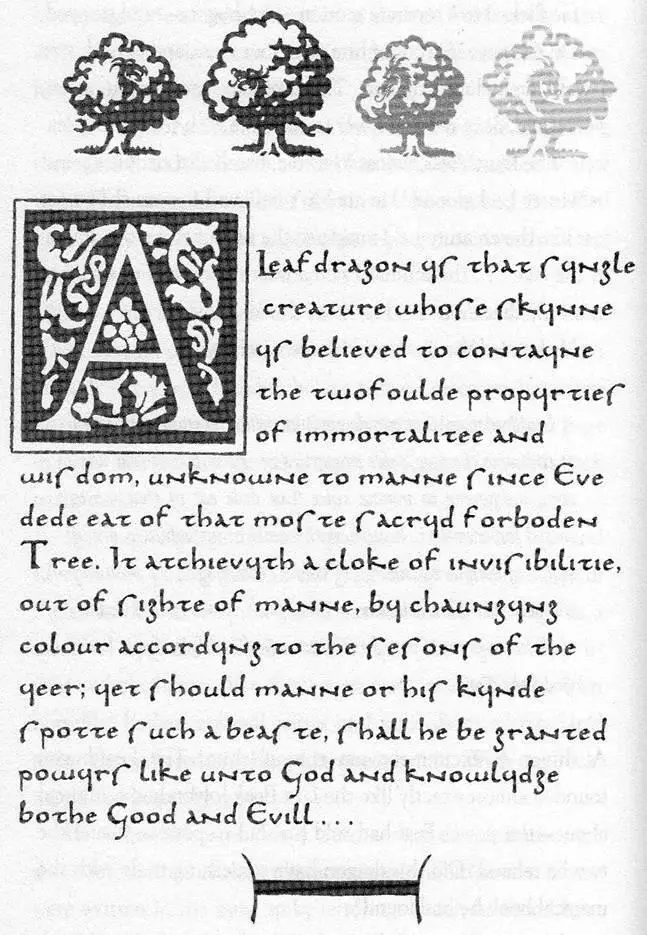 A Leaf dragon ys that syngle
creature whose skynne
ys believed to contayne
the twofoulde propyrties
of immortalitee and
wisdom, unknowne to manne since Eve
dede eat of that moste sacryd forboden
Tree. It atchievyth a cloke of invisibilitie,
out of sighte of manne, by chaungyng
colour accordyng to the sesons of the
yeer; yet should manne or his kynde
spotte such a beaste, shall he be granted
powyrs like unto God and knowlydge
bothe Good and Evill....